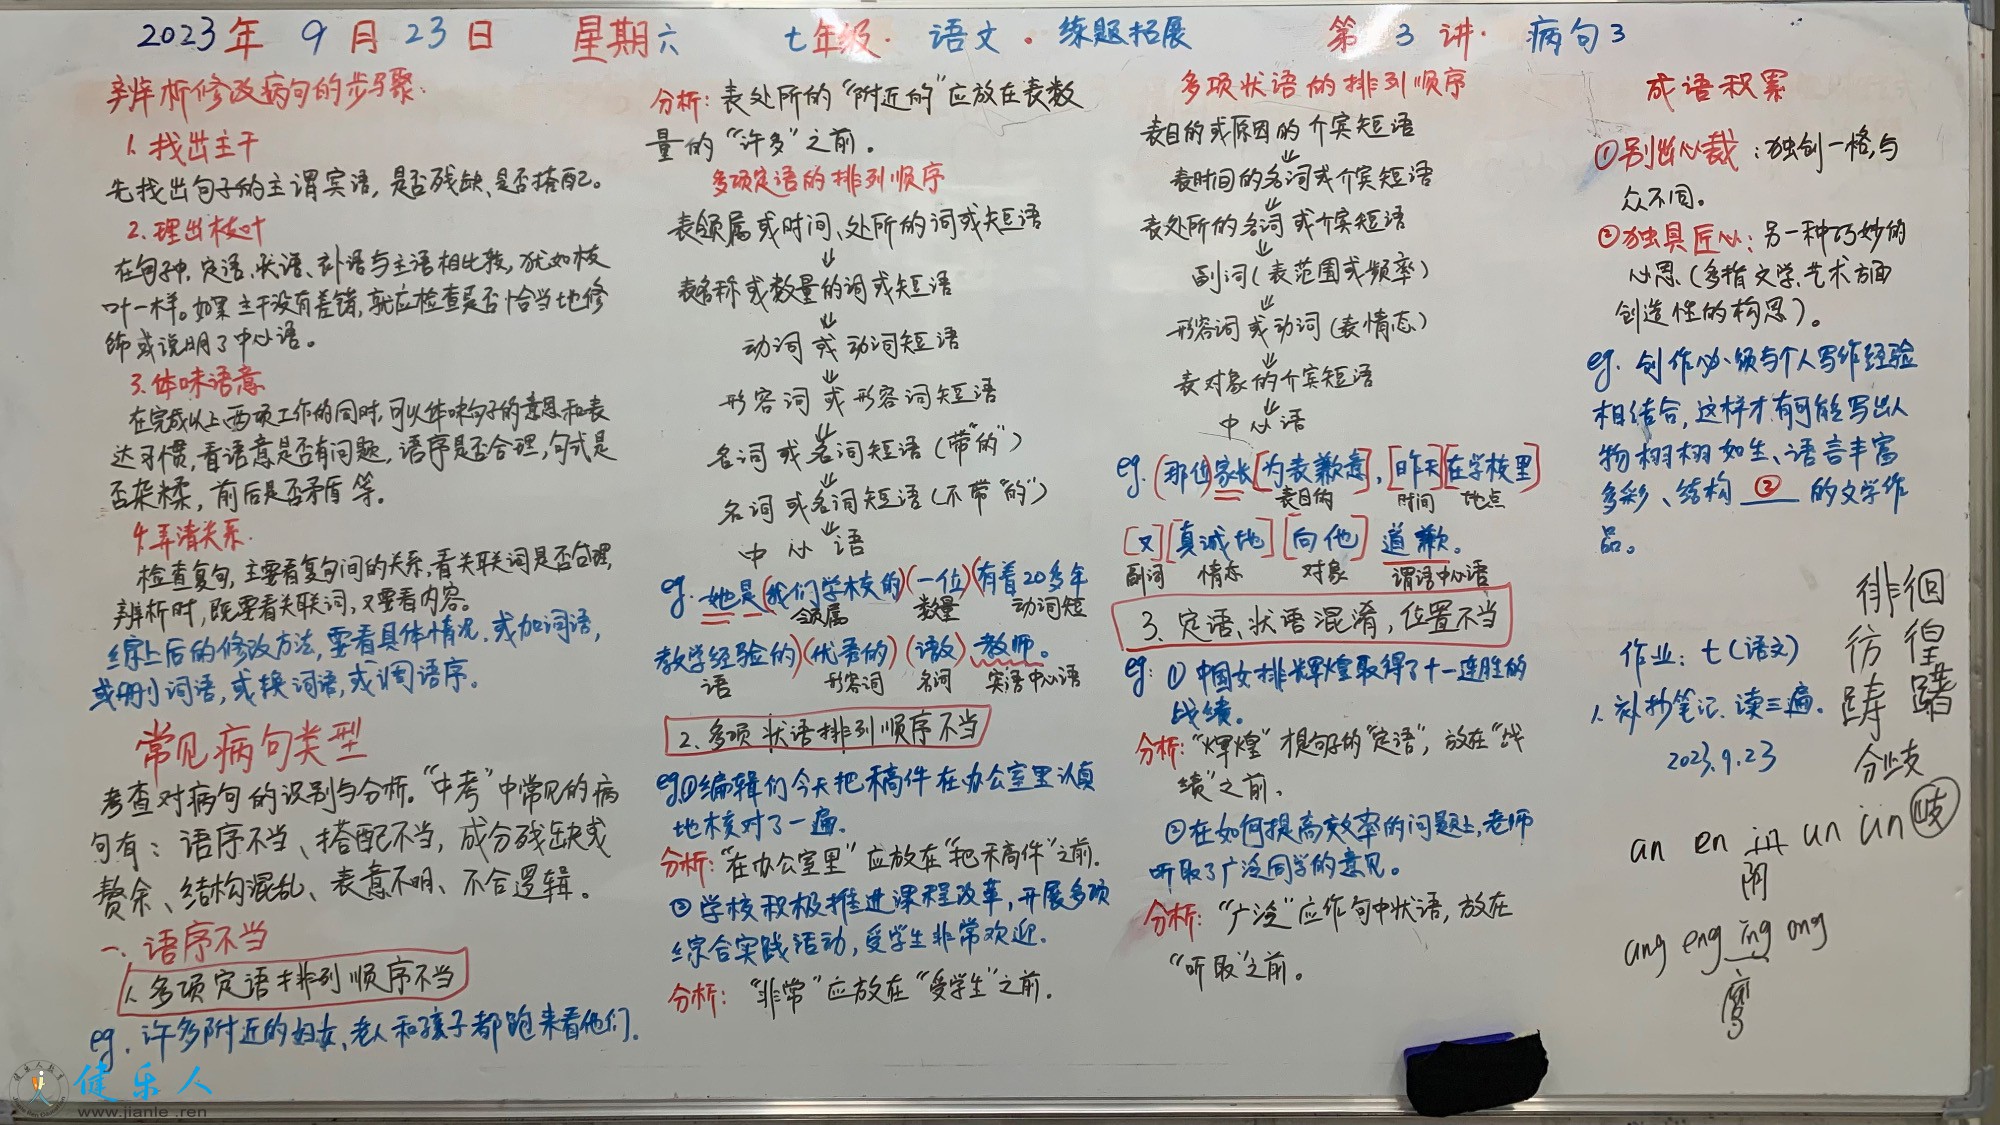 2023年 9月23日 星期六 七年级·语文·练题拓展 第3讲·病句3
辨析修改病句的步骤:
1、找出主干
先找出句子的主谓宾语,是否残缺、是否搭配。
2、理出枝叶
在句子中,定语、状语、补语与主语相比较,犹如枝
叶一样。如果主干没有差错,就应检查是否恰当地修
饰或说明了中心语。
3、体味语意
在完成以上两项工作的同时,可以体味句子的意思和表
达习惯,看语意是否有问题,语序是否合理,句式是
否杂糅,前后是否矛盾等。
4、弄清关系.
检查复句,主要看复句间的关系,看关联词是否合理,
辨析时,既要看关联词,又要看内容。
综上后的修改方法,要看具体情况,或加词语,
或删词语,或换词语,或调语序。
常见病句类型
考查对病句的识别与分析。“中考”中常见的病
句有:语序不当、搭配不当,成分残缺或
赘余、结构混乱、表意不明、不合逻辑。
一、语序不当
1、多项定语排列顺序不当
eg. 许多附近的妇女、老人和孩子都跑来看他们.
分析:表处所的“附近的”应放在表数
量的“许多”之前。
多项定语的排列顺序
表领属或时间、处所的词或短语
表名称或数量的词或短语
动词或动词短语
形容词或形容词短语
名词或名词短语(带“的”)
名词或名词短语(不带“的”)
中心语
eg. 她是(我们学校的)(一位)(有着20多年
领属 数量 动词短
教学经验的)(优秀的)(语文)教师。
语 形容词 名词 宾语中心语
2、多项状语排列顺序不当
eg①编辑们今天把稿件在办公室里认真
地核对了一遍.
分析:“在办公室里”应放在“把稿件”之前.
②学校积极推进课程改革,开展多项
综合实践活动,受学生非常欢迎.
分析:“非常”应放在“受学生”之前.
多项状语的排列顺序
表目的或原因的介宾短语
表时间的名词或介宾短语
表处所的名词或介宾短语
副词(表范围或频率)
形容词或动词(表情态)
表对象的介宾短语
中心语
eg. (那位)家长[为表歉意],[昨天][在学校里]
表目的 时间 地点
[又][真诚地][向他]道歉。
副词 情态 对象 谓语中心语
3、定语、状语混淆,位置不当
eg:①中国女排辉煌取得了十一连胜的
战绩。
分析:“辉煌”才是句子的“定语”,放在“战
绩”之前.
②在如何提高效率的问题上,老师
听取了广泛同学的意见。
分析:“广泛”应作句中状语,放在
“听取”之前。
成语积累
①别出心裁:独创一格,与
众不同。
②独具匠心:另一种巧妙的
心思(多指文学、艺术方面
创造性的构思)。
eg. 创作必须与个人写作经验
相结合,这样才有可能写出人
物栩栩如生、语言丰富
多彩、结构 ② 的文学作
品。
作业:七(语文)
1、抄笔记、读三遍。
2023.9.23
徘徊
彷徨
踌躇
分歧
歧
an en in un ün
阴
ang eng ing ong
鹰
健乐人
www.jianle.ren